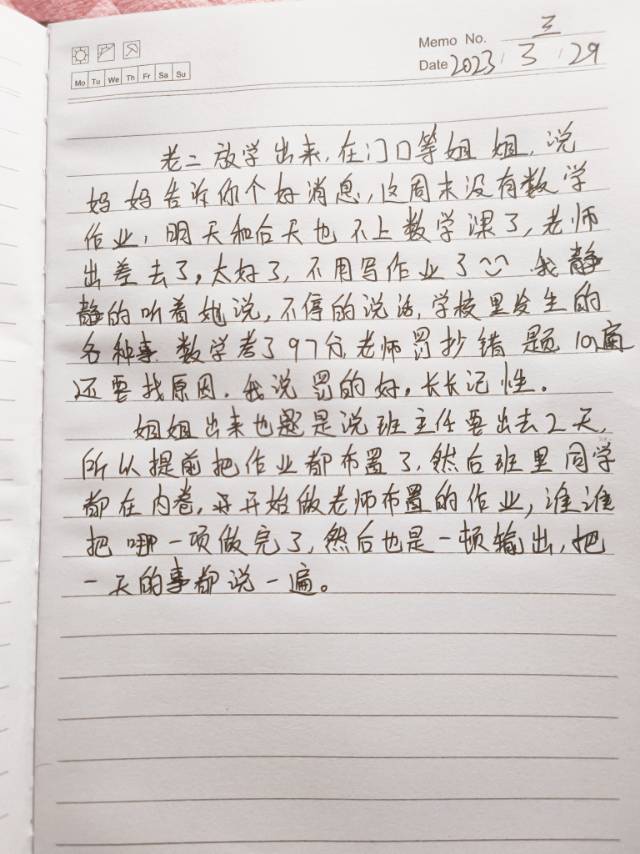 Memo No. 三
Mo Tu We Th Fr Sa Su
Date 2023 / 3 / 29
老二放学出来,在门口等姐姐,说
妈妈告诉你个好消息,这周末没有数学
作业,明天和后天也不上数学课了,老师
出差去了,太好了,不用写作业了 我静
静的听着她说,不停的说话,学校里发生的
各种事 数学考了97分,老师罚抄错题10遍
还要找原因.我说罚的好,长长记性.
姐姐出来也是说班主任要出去2天,
所以提前把作业都布置了,然后班里同学
都在内卷,开始做老师布置的作业,谁谁
把哪一项做完了,然后也是一顿输出,把
一天的事都说一遍。